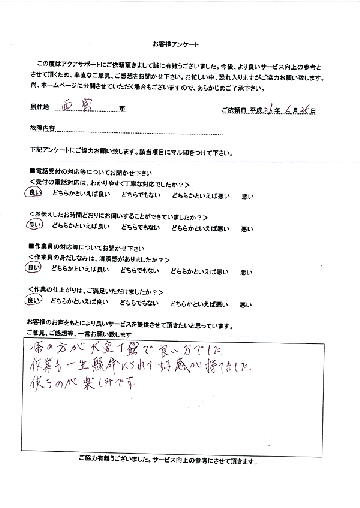 お客様アンケート
この度はアクアサポートにご依頼頂きまして誠に有難うございました。今後、より良いサービス向上の参考と
させて頂くため、率直なご意見、ご感想をお聞かせ下さい。お忙しい中、恐れ入りますがご協力お願い致します。
尚、ホームページに公開させていただく場合もございますので、あらかじめご了承下さい。
ご依頼日 平成 年 6月 26日
故障内容
下記アンケートにご協力お願い致します。該当項目にマル印をつけて下さい。
■電話受付の対応等についてお聞かせ下さい
<受付の電話対応は、わかりやすく丁寧な対応でしたか?>
良い どちらかといえば良い どちらでもない どちらかといえば悪い 悪い
<お伝えしたお時間どおりにお伺いすることができていましたか?>
良い どちらかといえば良い どちらでもない どちらかといえば悪い 悪い
■作業員の対応等についてお聞かせ下さい
<作業員の身だしなみは、清潔感がありましたか?>
良い どちらかといえば良い どちらでもない どちらかといえば悪い 悪い
<作業の仕上がりは、ご満足いただけましたか?>
良い どちらかといえば良い どちらでもない どちらかといえば悪い 悪い
お客様のお声をもとにより良いサービスを提供させて頂きたいと思っています。
ご意見、ご感想等、一言お願い致します
の方が 良い方でした
作業も一生懸命 好感が持てました
使うのが楽しみです
ご協力有難うございました。サービス向上の参考にさせて頂きます。